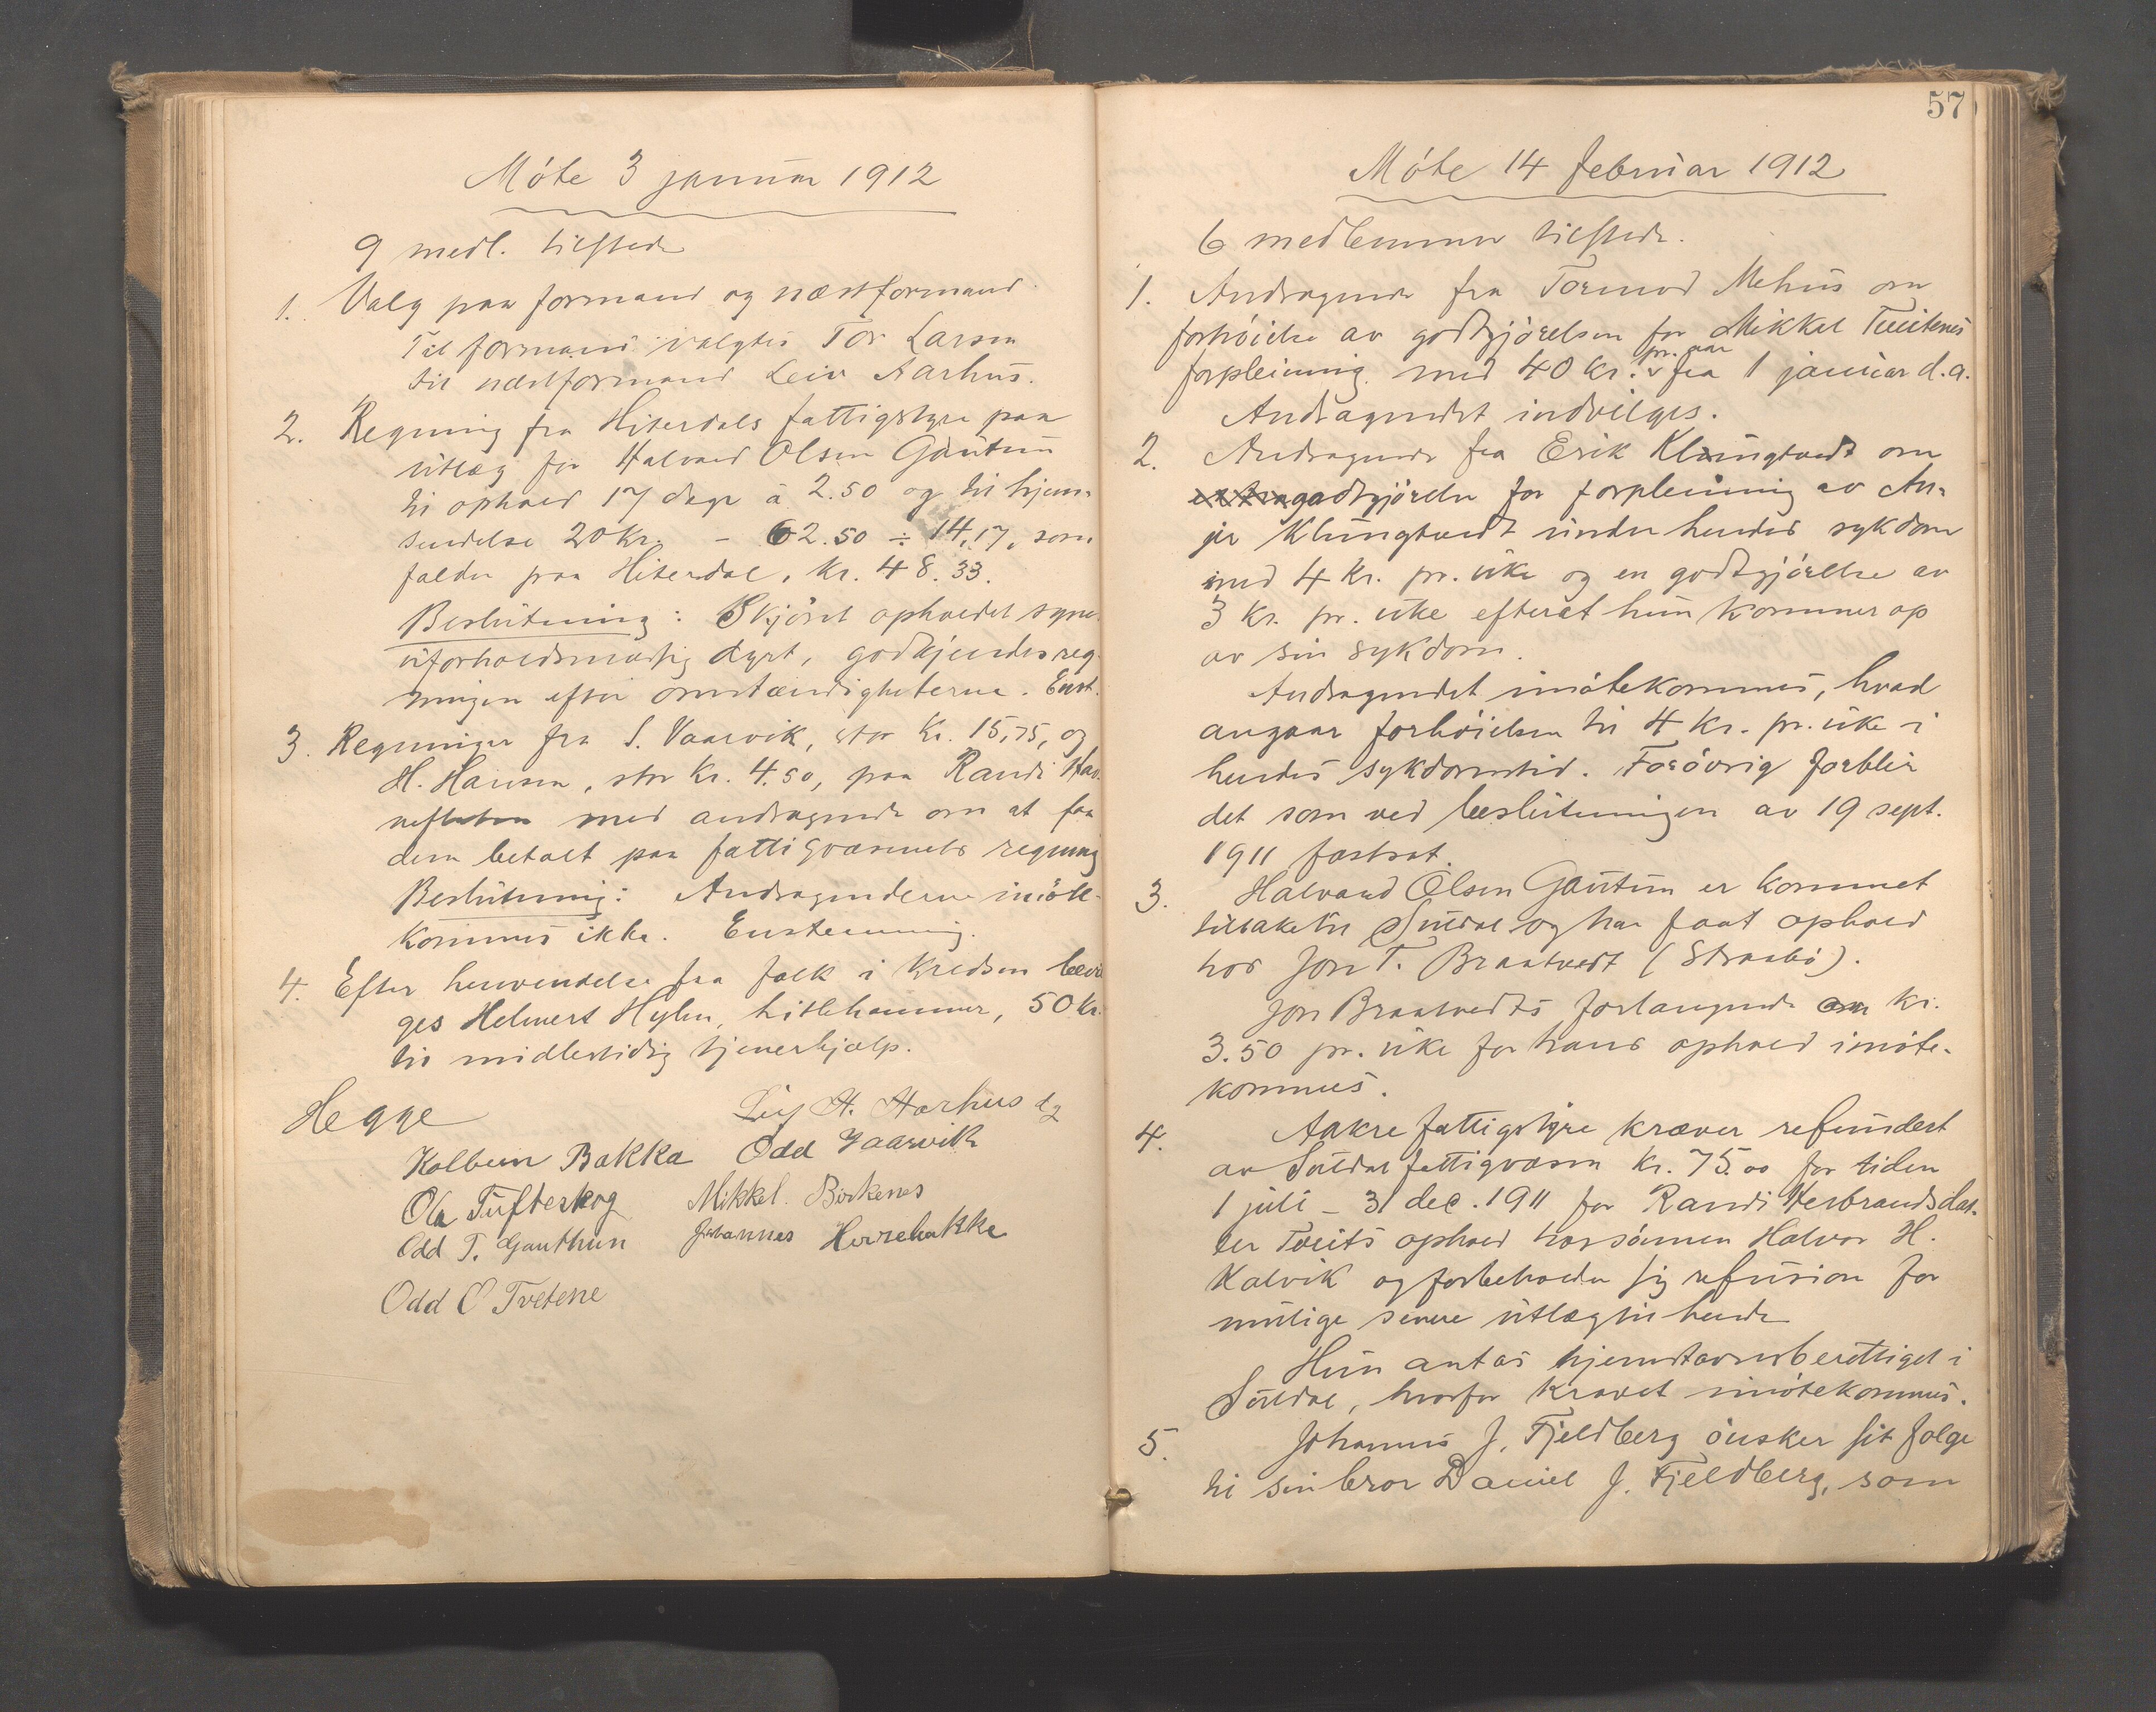 Móte 3 januar 1912
9 medl. tilstede
1. Valg paa formand og næstformand.
Til formand valgtes Tor Larsen
til næstformand Leiv Aarhus.
2. Regning fra Hiterdals fattigstyre paa
utlæg for Halvard Olsen Gautun
til ophold 17 dage à 2.50 og til hjem-
sendelse 20 kr. – 62.50 ÷ 14,17, som
falder paa Hiterdal, kr. 48.33.
Beslutning: Skjönt opholdet synes
uforholdsmæssig dyrt, godkjendes reg-
ningen efter omstændigheterne. Enst.
3. Regninger fra S. Vaarvik, stor kr. 15,75, og
H. Hansen, stor kr. 4.50, paa Randi
med andragende om at faa
dem betalt paa fattigvæsenets regning
Beslutning: Andragenderne imöte-
kommes ikke. Enstemmig.
4. Efter henvendelse fra folk i kredsen bevil
ges Helmert Hylen, Litlehammer, 50 kr.
til midlertidig tjenerhjælp.
Hegge Leif A. Aarhus
Kolbein Bakka Odd Vaarvik
Ola Tufteskog Mikkel Birkenes
Odd T. Gauthun Johannes Herrebakke
Odd O Tvetene
57
Móte 14 februar 1912
6 medlemmer tilstede.
1. Andragende fra Tormod Mehus om
forhöielse av godtgjörelsen for Mikkel Tveitenes
forpleining med 40 kr. pr. aar fra 1 januar d.a.
Andragendet indvilges.
2. Andragende fra Erik Klungtvedt om
extra godtgjörelse for forpleining av An-
je Klungtvedt under hendes sykdom
med 4 kr. pr. uke og en godtgjörelse av
3 kr. pr. uke efterat hun kommer op
av sin sykdom.
Andragendet imötekommes, hvad
angaar forhöielsen til 4 kr. pr. uke i
hendes sykdomstid. Forövrig forblir
det som ved beslutningen av 19 sept.
1911 fastsat.
3. Halvard Olsen Gautun er kommet
tilbake til Suldal og har faat ophold
hos Jon T. Braatvedt (Straabö).
Jon Braatvedts forlangende om kr.
3.50 pr. uke for hans ophold imöte-
kommes.
4. Aakre fattigstyre kræver refundert
av Suldal fattigvæsen kr. 75.00 for tiden
1 juli – 31 dec. 1911 for Randi Herbrandsdat-
ter Tveits ophold hos sönnen Halvor H.
Kalvik og forbeholder sig refusion for
mulige senere utlæg til hende
Hun antas hjemstavnsberettiget i
Suldal, hvorfor kravet imötekommes.
5. Johannes J. Fjeldberg önsker sit folge
til sin bror Daniel J. Fjeldberg, som